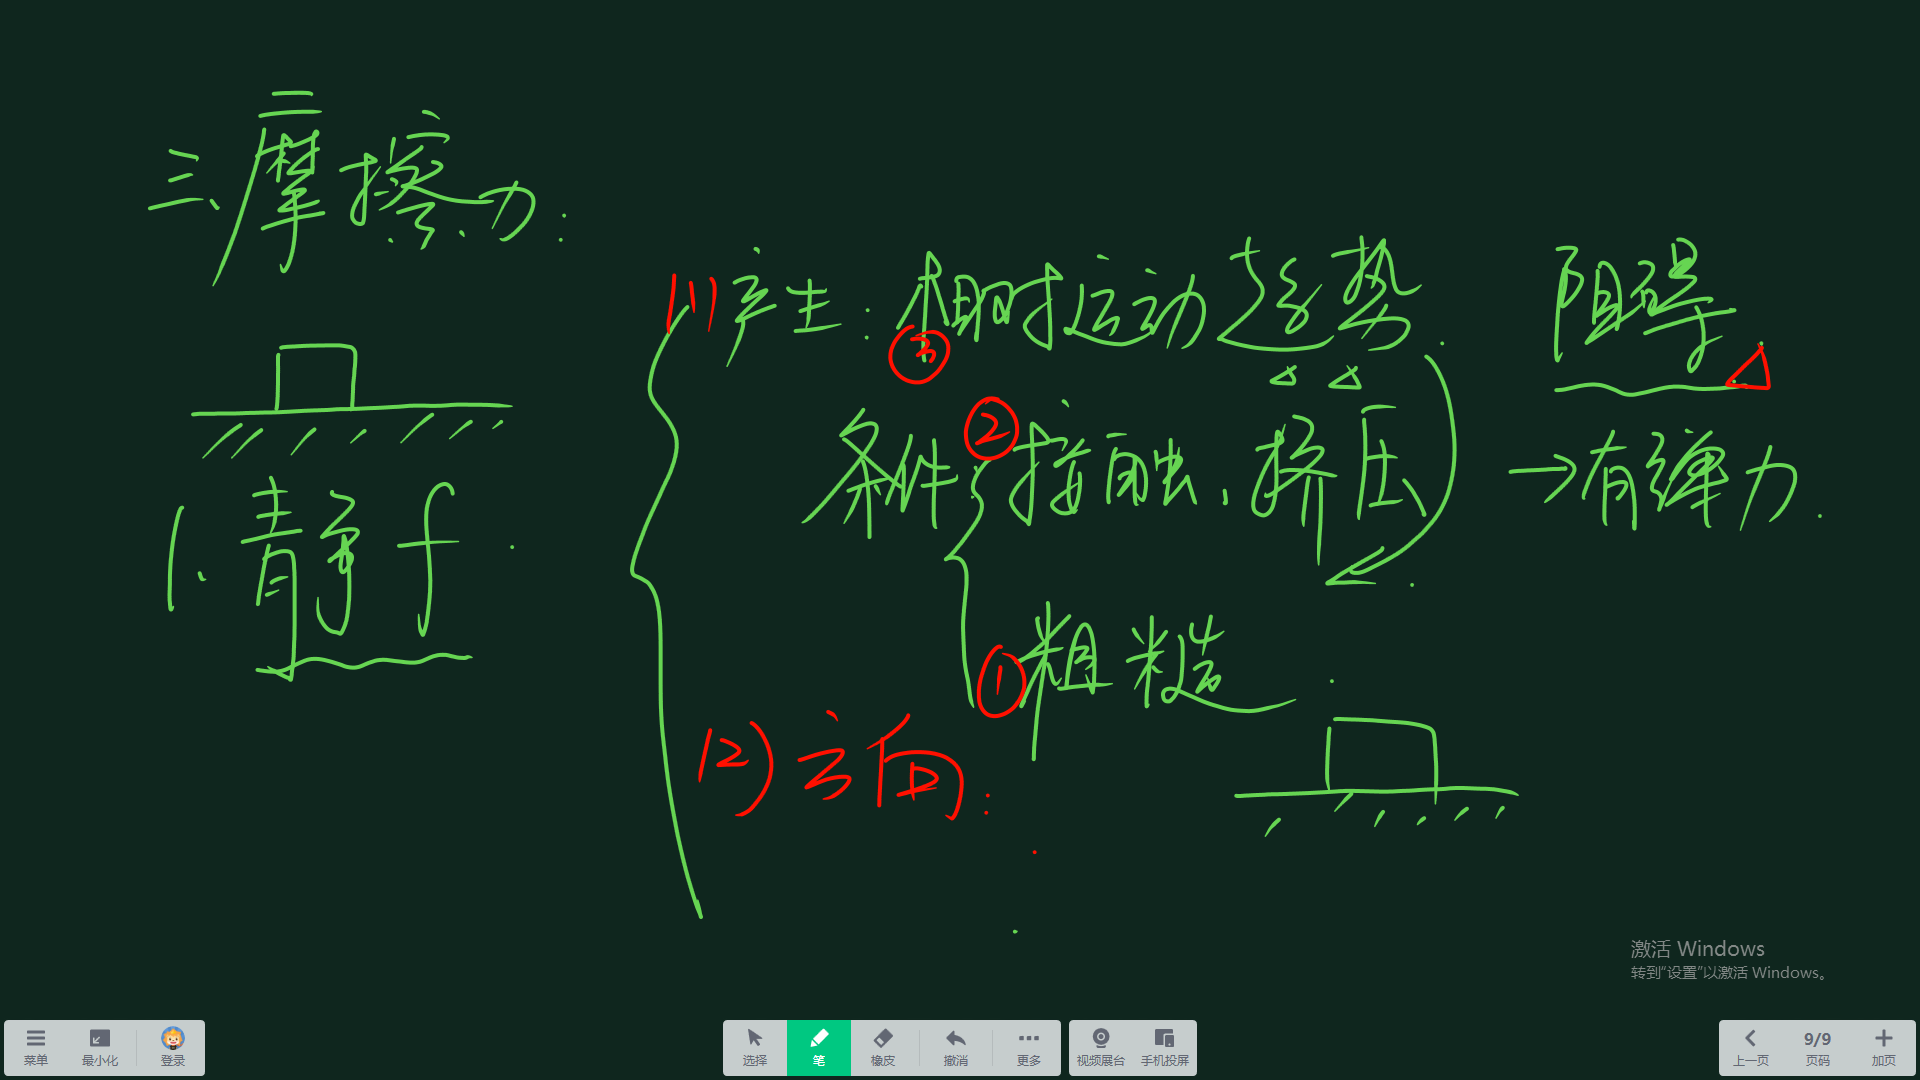 三、摩擦力:
(1)产生:相对运动趋势. 阻碍
③
条件 ②接触、挤压. →有弹力.
1.静f.
①粗糙.
(2)方向:
激活 Windows
转到“设置”以激活 Windows。
菜单 最小化 登录 选择 笔 橡皮 撤消 更多 视频展台 手机投屏 上一页 9/9 页码 加页